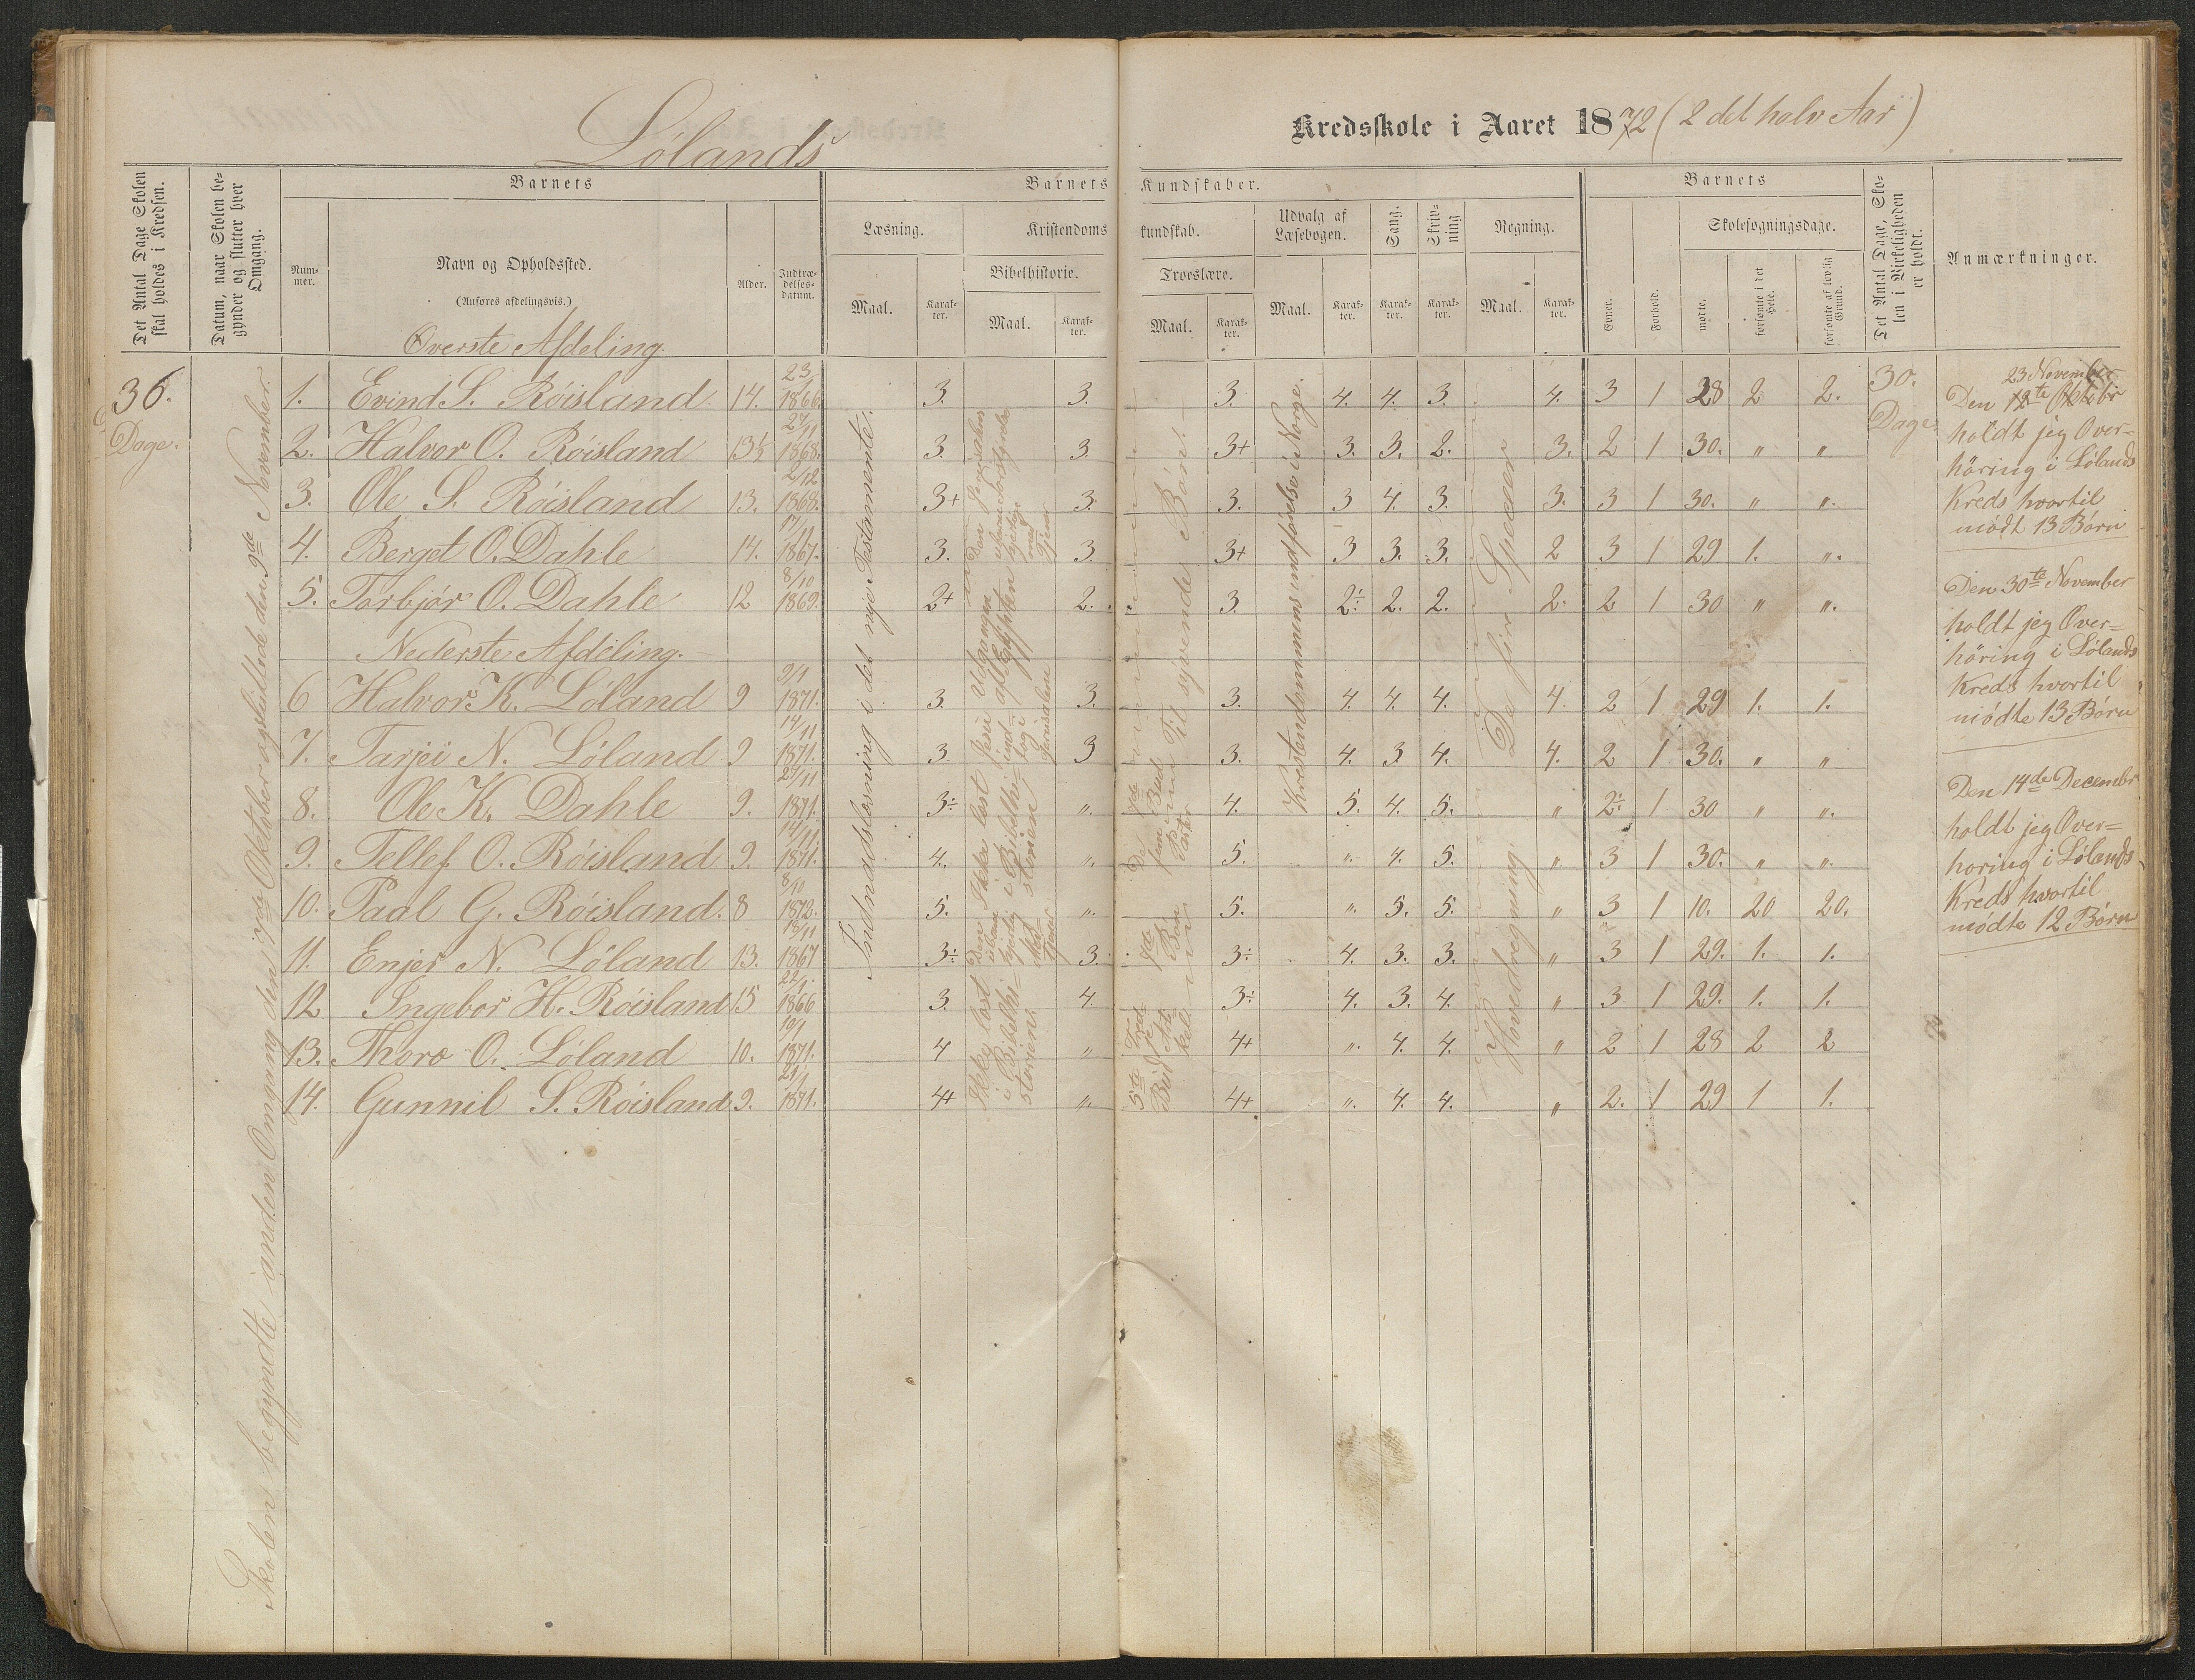 Lølands
Kredsskole i Aaret 1872 (2 det halv Aar)
Det Antal Dage Skolen skal holdes i Kredsen.
Datum, naar Skolen begynder og slutter hver Omgang.
Barnets
Nummer.
Navn og Opholdssted.
(Anføres afdelingsvis.)
Alder.
Indtrædelsesdatum.
Barnets Kundskaber.
Læsning.
Maal.
Karakter.
Kristendomskundskab.
Bibelhistorie.
Maal.
Karakter.
Troeslære.
Maal.
Karakter.
Udvalg af Læsebogen.
Maal.
Karakter.
Sang.
Karakter.
Skrivning
Karakter.
Regning.
Maal.
Karakter.
Barnets
Evner.
Forhold.
Skolesøgningsdage.
mødte.
forsømte i det Hele.
forsømte af lovlig Grund.
Det Antal Dage, Skolen i Virkeligheden er holdt.
Anmærkninger.
36. Dage.
Skolen begyndte anden Omgang den 7de Oktober og sluttede den 9de November.
Øverste Afdeling.
1. Evind S. Røisland 14. 23 1866. 3. 3. 3. 4. 4. 3. 4. 3 1 28 2 2.
2. Halvor O. Røisland 13½ 27/11 1868. 3. 3. 3+ 3. 3. 2. 3. 2 1 30. " "
3. Ole S. Røisland 13. 2/12 1868. 3+ 3. 3. 3 4. 3. 3. 3 1 30. " ".
4. Berget O. Dahle 14. 17/11 1867. 3. 3. 3+ 3 3. 3. 2 3 1 29 1. ".
5. Torbjør O. Dahle 12 8/10 1869. 2+ 2. 3. 2÷ 2. 2. 2. 2 1 30 " ".
Nederste Afdeling.
6 Halvor K. Løland 9 9/1 1871. 3. 3. 3. 4. 4. 4. 4. 2 1 29 1. 1.
7. Tarjei N. Løland 9 14/11 1871. 3. 3 3. 4. 3 4. 4. 2 1 30. " "
8. Ole K. Dahle 9. 27/11 1871. 3÷ ". 4. 5. 4. 5. " 2÷ 1 30 " ".
9. Tellef O. Røisland 9. 14/11 1871. 4. ". 5. ". 4. 5. " 3 1 30. " ".
10. Paal G. Røisland. 8 8/10 1872. 5. ". 5. ". 3. 5. " 3 1 10. 20 20.
11. Enjer N. Løland 13. 18/11 1867 3÷ 3. 3÷ 4. 3. 3. " 3 1 29. 1. 1.
12 Ingebor H. Røisland 15 22/1 1866 3. 4. 3÷ 4. 3. 4. " 3 1 29. 1. 1.
13. Thoro O. Løland 10. 19/1 1871. 4 " 4+ ". 4. 4. " 2 1 28 2 2
14. Gunnil S. Røisland 9. 21/1 1871. 4+ ". 4+ ". 4. 4. " 2. 1 29 1 1.
Indnadslæsning i det nye Testamente.
Ikke læst i Bibelhistorien.
Ikke læst i Bibelhistorien
til syvende Bøn.
Krestendommens indførelse i Norge.
De fire Specier
Hovedregning.
30. Dage.
23 November
Den 12te Oktobr
holdt jeg Over=
høring i Lølands
Kreds hvortil
mødt 13 Børn
Den 30te November
holdt jeg Over=
høring i Lølands
Kreds hvortil
mødte 13 Børn
Den 14de Decembr
holdt jeg Over=
høring i Lølands
Kreds hvortil
mødte 12 Børn